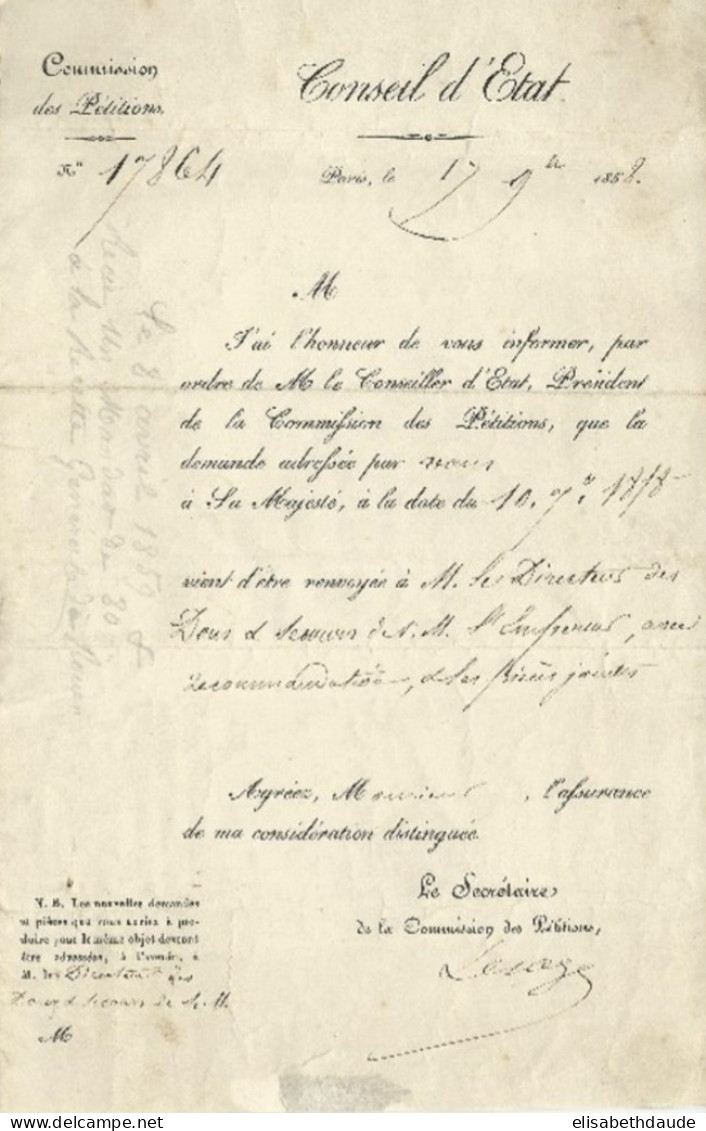 Commission
des Pétitions.
Conseil d'Etat.
N° 17864
Paris, le 17 9bre 1858.
M
J'ai l'honneur de vous informer, par
ordre de M. le Conseiller d'Etat, Président
de la Commission des Pétitions, que la
demande adressée par vous
à Sa Majesté, à la date du 10. 7bre 1858
vient d'être renvoyée à M. le Directeur des
Dons et secours de S. M. l'Empereur, avec
recommandation, et les pièces jointes
Agréez, Monsieur, l'assurance
de ma considération distinguée.
Le Secrétaire
de la Commission des Pétitions,
Lesage
N. B. Les nouvelles demandes
et pièces que vous auriez à pro-
duire pour le même objet devront
être adressées, à l'avenir, à
M. le Directeur des
Dons et secours de S. M.
M
Le 8 avril 1859
reçu un Mandat de 80 f
à la Recette Générale de
elisabethdaude